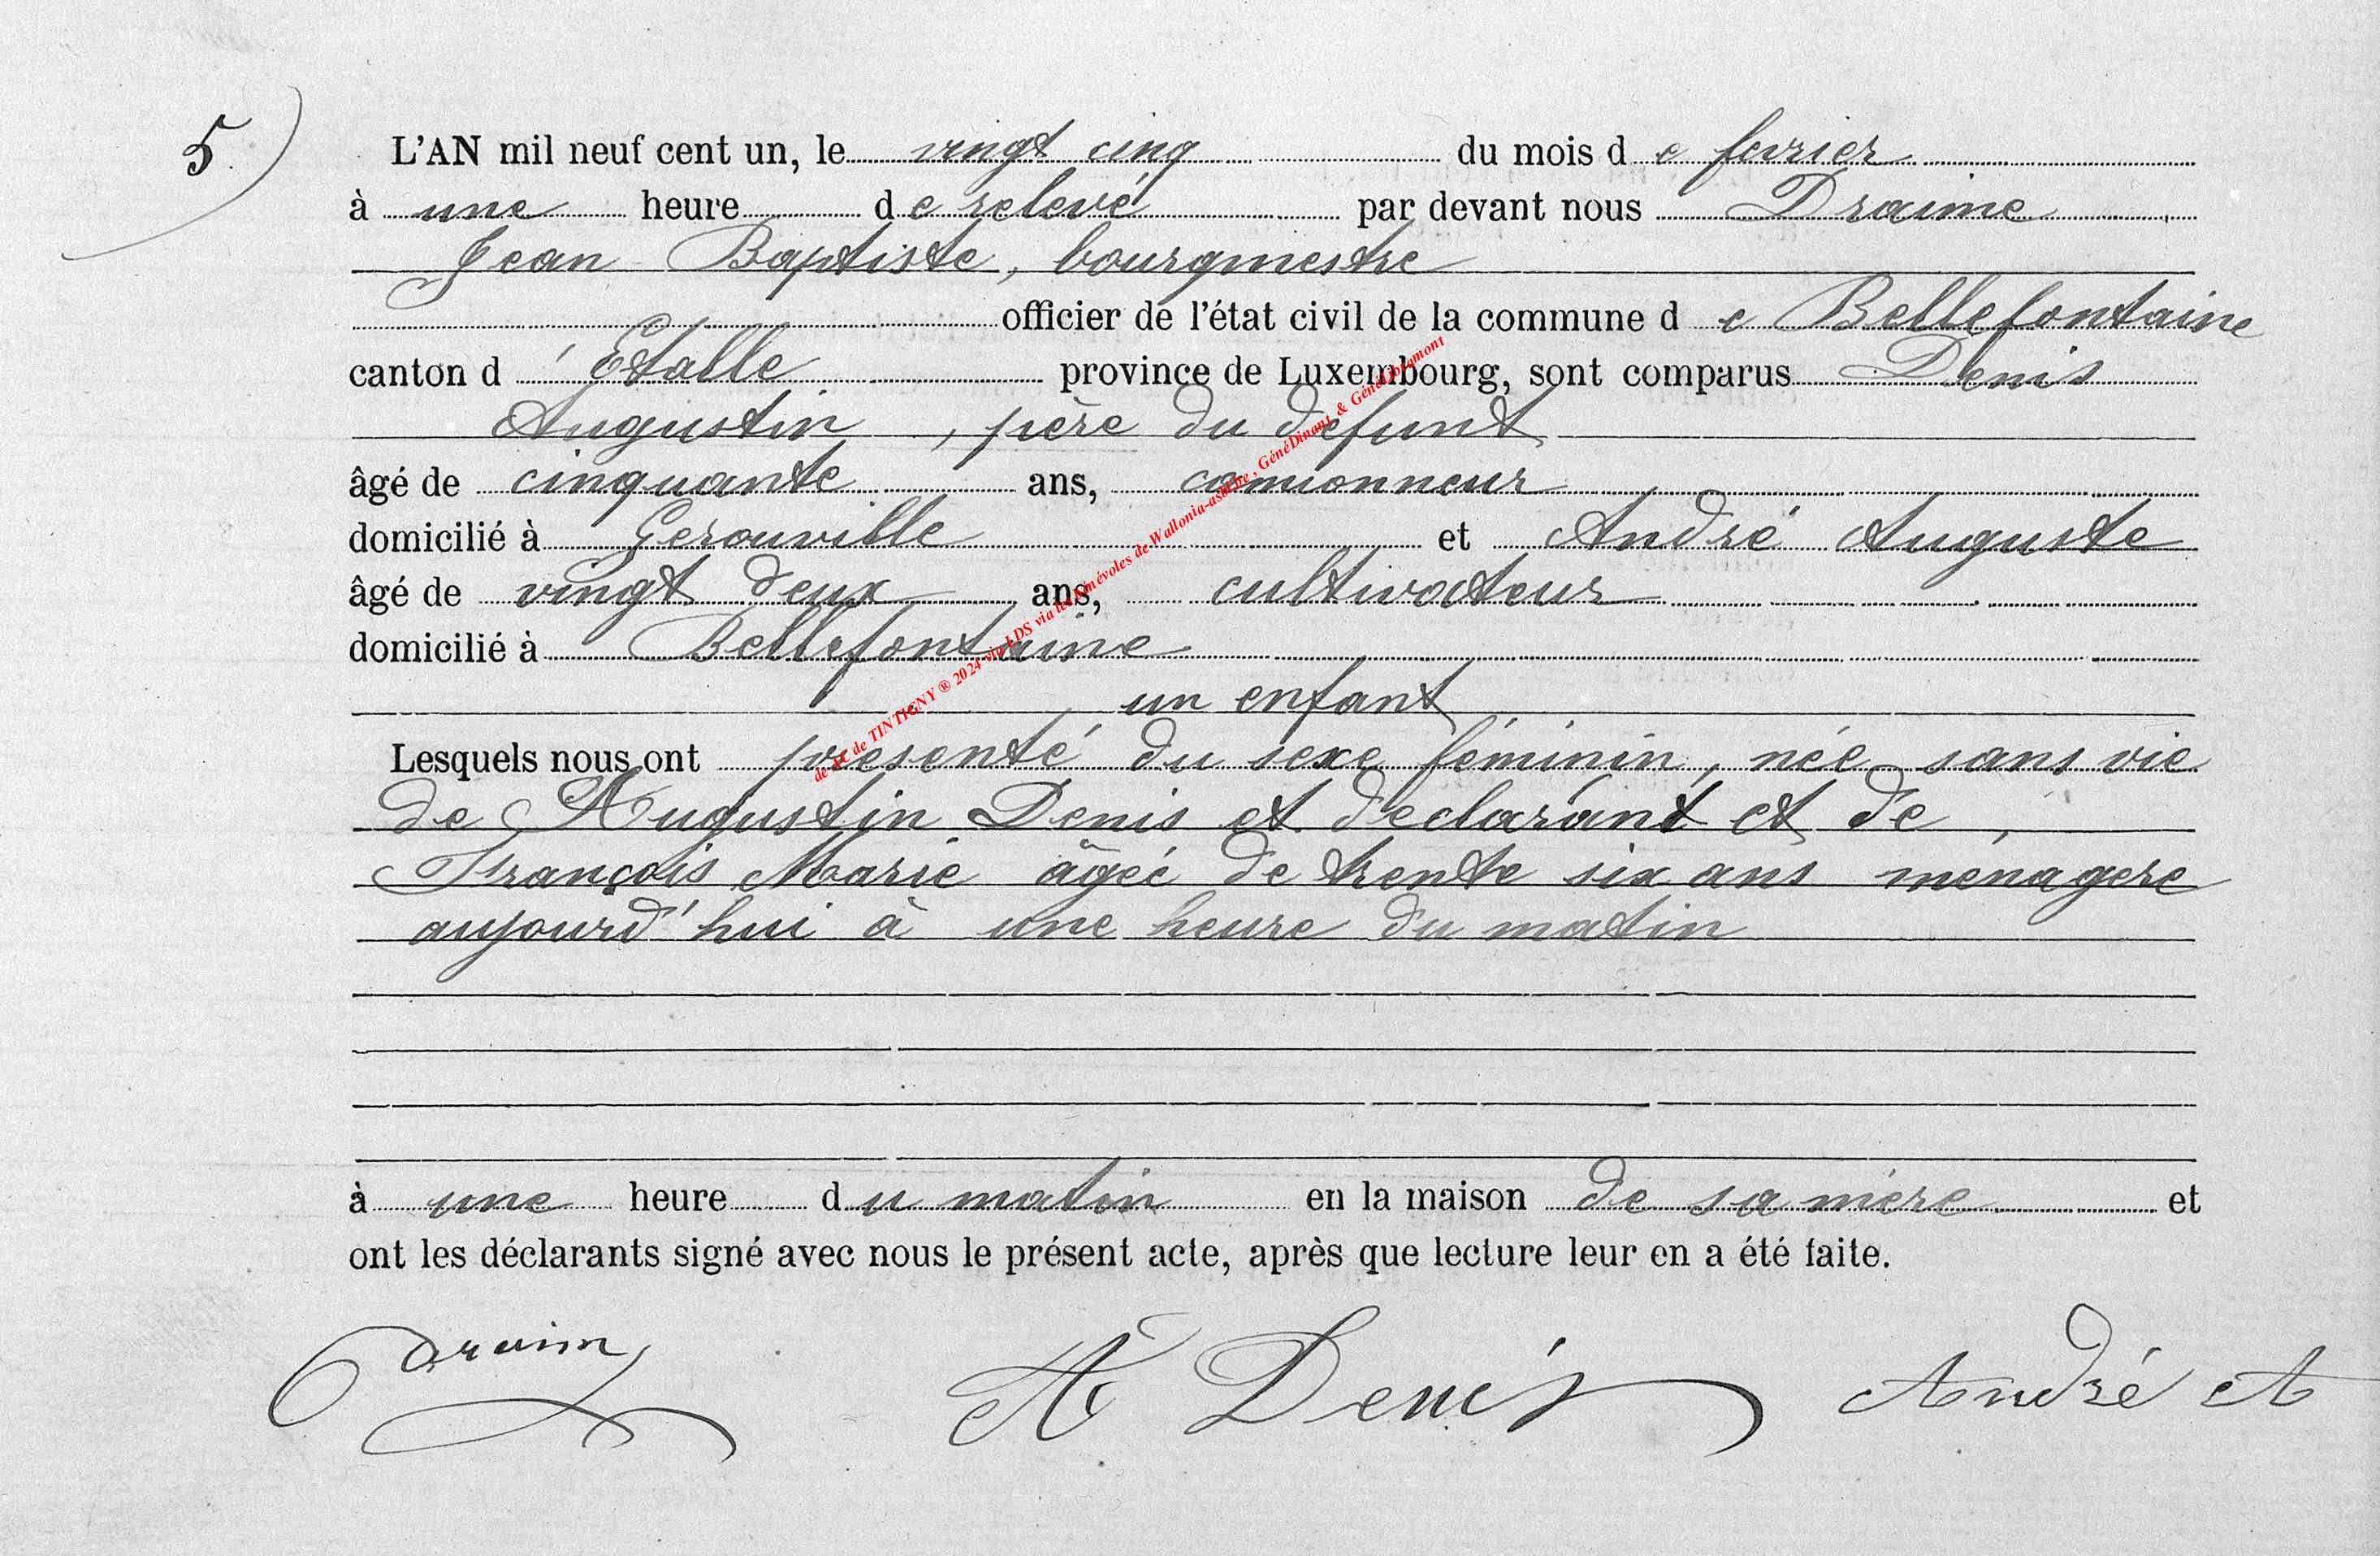 5
L'AN mil neuf cent un, le vingt cinq du mois de fevrier
à une heure de relevé par devant nous Draime
Jean Baptiste, bourgmestre
officier de l'état civil de la commune de Bellefontaine
canton d'Etalle province de Luxembourg, sont comparus Denis
Augustin, père du défunt
âgé de cinquante ans, camionneur
domicilié à Gerouville et André Auguste
âgé de vingt deux ans, cultivateur
domicilié à Bellefontaine
un enfant
Lesquels nous ont présenté du sexe féminin, née sans vie
de Augustin Denis et déclarant et de
François Marie âgée de trente six ans ménagère
aujourd'hui à une heure du matin
à une heure du matin en la maison de sa mère et
ont les déclarants signé avec nous le présent acte, après que lecture leur en a été faite.
Draim A Denis André A
de AC de TINTIGNY ® 2024 via LDS via les bénévoles de Wallonia-asbl.be, GénéDinant & GénéLibramont